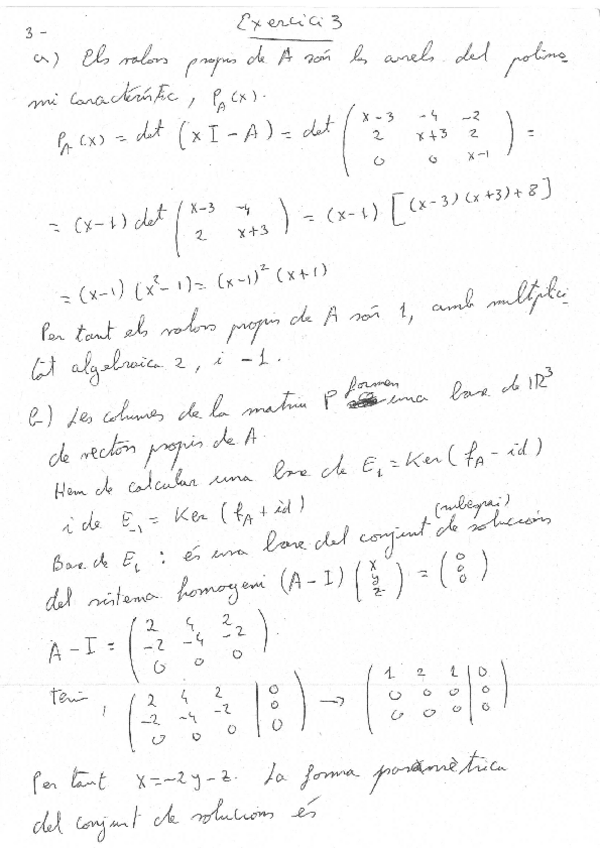 Exercici 3
3-
a) Els valors propis de A són les arrels del polino-
mi característic, P_A(x).
P_A(x) = det (xI - A) = det ( x-3 -4 -2 ; 2 x+3 2 ; 0 0 x-1 ) =
= (x-1) det ( x-3 -4 ; 2 x+3 ) = (x-1) [(x-3)(x+3)+8]
= (x-1)(x²-1) = (x-1)²(x+1)
Per tant els valors propis de A són 1, amb multiplici
tat algebraica 2, i -1.
b) Les columnes de la matriu P formen una base de ℝ³
de vectors propis de A.
Hem de calcular una base de E₁ = Ker(f_A - id)
i de E₋₁ = Ker(f_A + id)
Base de E₁ : és una base del conjunt (subespai) de solucions
del sistema homogeni (A-I) ( x ; y ; z ) = ( 0 ; 0 ; 0 )
A-I = ( 2 4 2 ; -2 -4 -2 ; 0 0 0 ).
tenim, ( 2 4 2 | 0 ; -2 -4 -2 | 0 ; 0 0 0 | 0 ) → ( 1 2 1 | 0 ; 0 0 0 | 0 ; 0 0 0 | 0 )
Per tant x = -2y - z. La forma paramètrica
del conjunt de solucions és